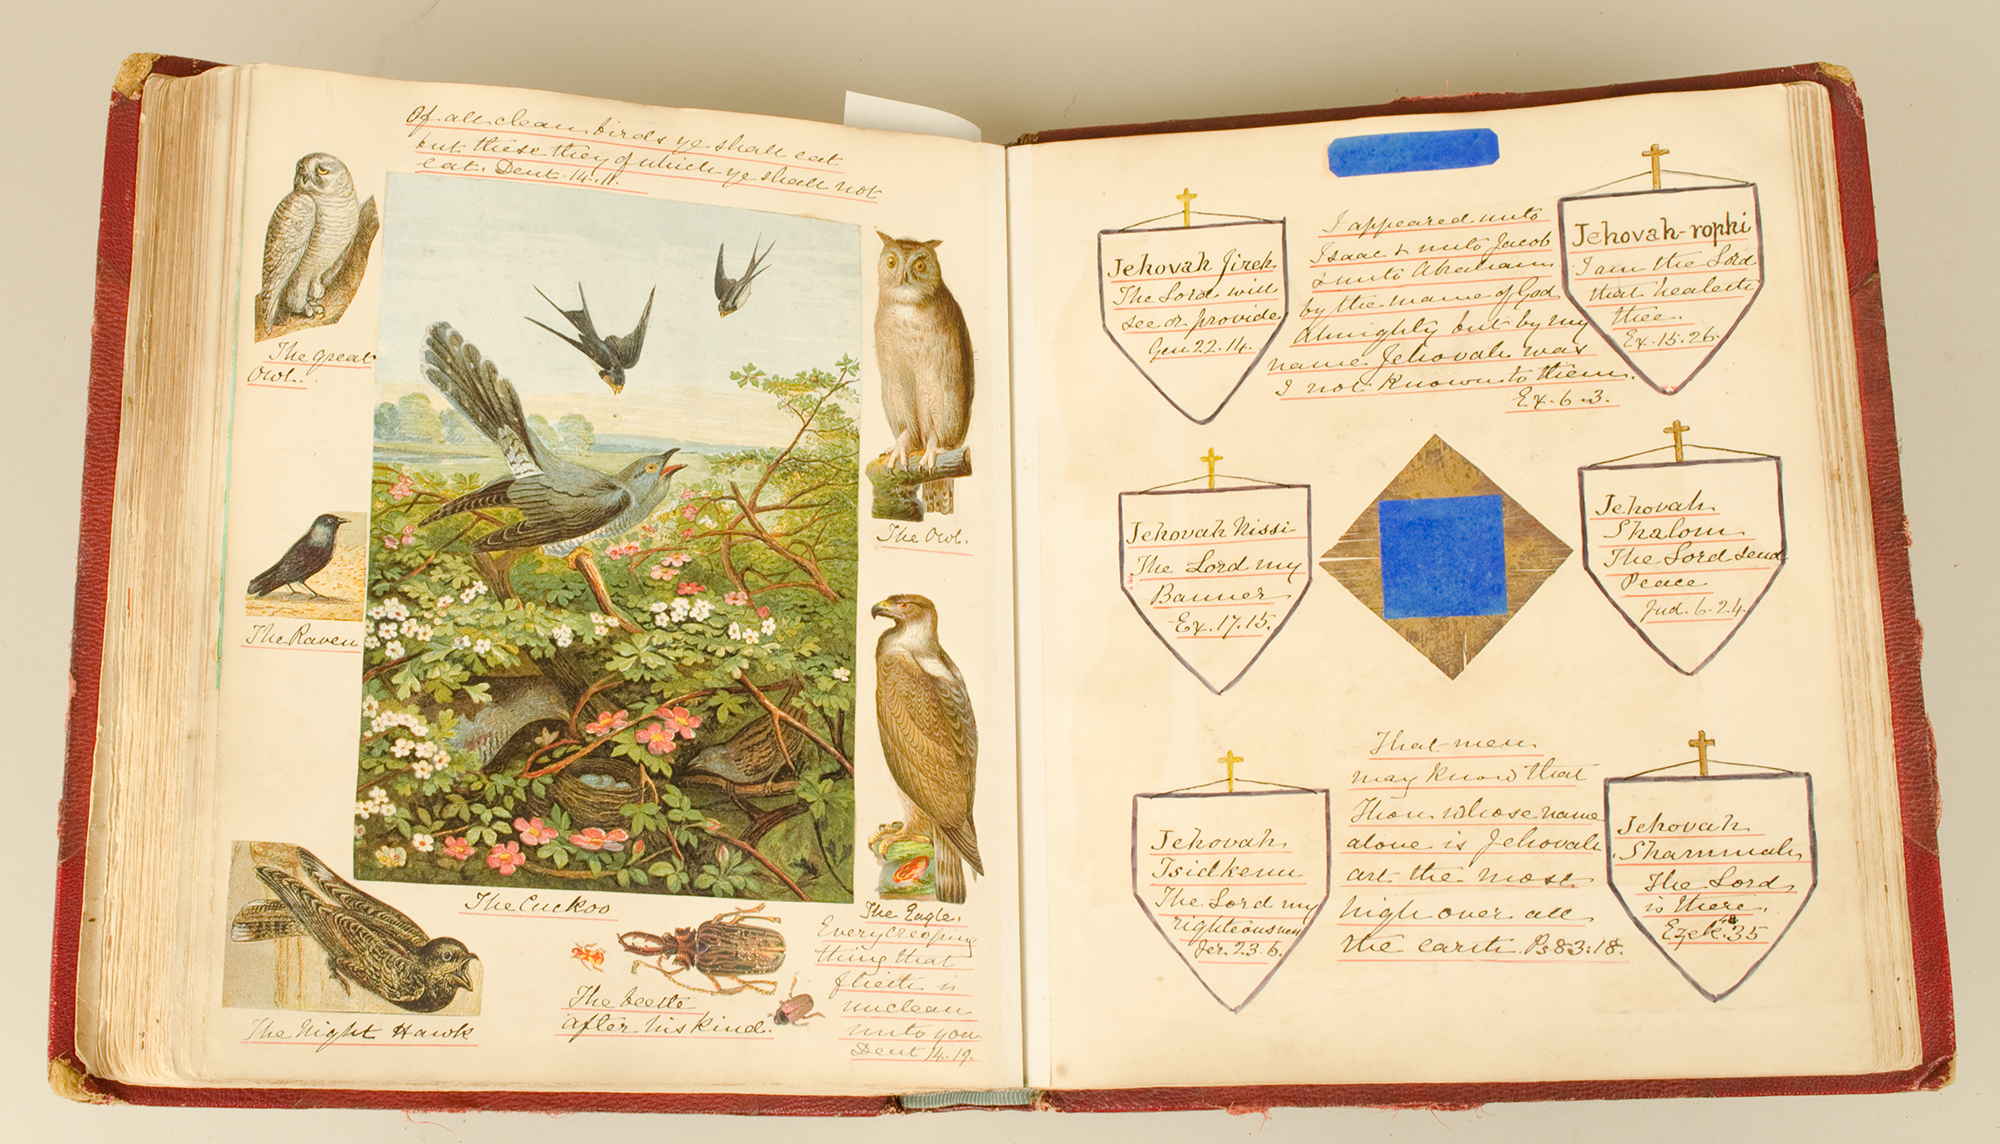 Of all clean birds ye shall eat
but these they of which ye shall not
eat. Deut. 14.11.
The great
Owl.
The Owl.
The Raven
The Eagle.
The Cuckoo
The Night Hawk
The beetle
after his kind.
Every creeping
thing that
flieth is
unclean
unto you
Deut 14.19.
Jehovah Jireh
The Lord will
see or provide
Gen 22.14.
I appeared unto
Isaac & unto Jacob
& unto Abraham
by the name of God
Almighty but by my
name Jehovah was
I not known to them.
Ex. 6.3.
Jehovah-rophi
I am the Lord
that healeth
thee.
Ex. 15.26.
Jehovah Nissi
The Lord my
Banner
Ex. 17.15.
Jehovah
Shalom
The Lord send
Peace
Jud. 6.24.
Jehovah
Tsidkenu
The Lord my
righteousness
Jer. 23.6.
That men
may know that
Thou whose name
alone is Jehovah
art the most
high over all
the earth. Ps 83:18.
Jehovah
Shammah
The Lord
is there.
Ezek. 35